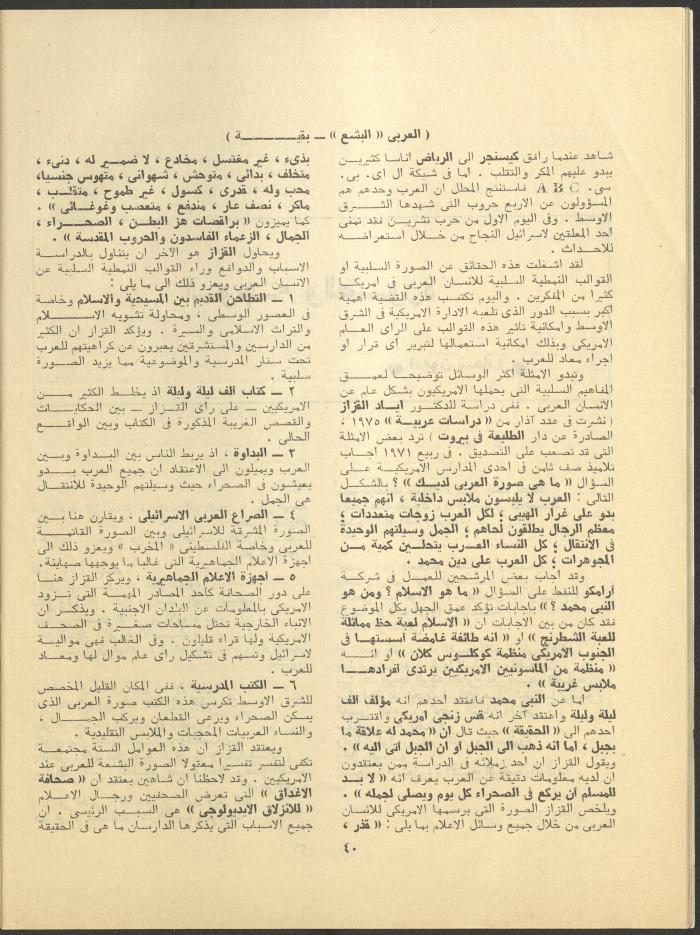 ( العربي « البشع » ــ بقيـــــــة )
شاهد عندما رافق كيسنجر الى الرياض اناسا كثيريـن
يبدو عليهم المكر والتقلب . اما في شبكة ال اي. بي.
سي. A B C فاستنتج المحلل ان العرب وحدهم هم
المسؤولون عن الاربع حروب التي شهدها الشـــرق
الاوسط . وفي اليوم الاول من حرب تشريـن فقد تمنى
احد المعلقين لاسرائيل النجاح من خــلال استعراضـه
للاحـداث .
لقد اشغلت هذه الحقائق عن الصورة السلبية او
القوالب النمطية السلبية للانسان العربي في امريكـا
كثيرا من المفكرين . واليوم تكتسب هذه القضية اهمية
اكبر بسبب الدور الذي تلعبه الادارة الامريكية في الشرق
الاوسط وامكانية تاثير هذه القوالب على الراي العـام
الامريكي وبذلك امكانية استعمالها لتبرير اي قرار او
اجراء معاد للعرب .
وتبدو الامثلة اكثر الوسائل توضيحـا لعمــق
المفاهيم السلبية التي يحملها الامريكيون بشكل عام عن
الانسان العربي . ففي دراسة للدكتـور ايـاد القزاز
( نشرت في عدد آذار من « دراسات عربيــة » ١٩٧٥ ،
الصادرة عن دار الطليعة في بيروت ) ترد بعض الامثلة
التي قد تصعب على التصديق . في ربيع ١٩٧١ اجـاب
تلاميذ صف ثامن في احدى المدارس الامريكيـة علـى
السؤال « ما هي صورة العربي لديـك » ؟ بالشكــل
التالي : العرب لا يلبسون ملابس داخلية ، انهم جميعا
بدو على غرار الهيبي ؛ لكل العرب زوجات متعددات ؛
معظم الرجال يطلقون لحاهم ؛ الجمل وسيلتهم الوحيدة
في الانتقال ؛ كل النساء العــرب يتحلــين كمية مــن
المجوهرات ؛ كل العرب على دين محمد .
وقد اجاب بعض المرشحين للعمـل في شركــة
أرامكو للنفط على السؤال « ما هو الاسلام ؟ ومن هو
النبي محمد ؟ » باجابات تؤكد عمق الجهل بكل الموضوع
فقد كان من بين الاجابات ان « الاسلام لعبة حظ مماثلة
للعبة الشطرنج » او « انه طائفة غامضة اسستها في
الجنوب الامريكي منظمة كوكلـوس كلان » او انـــه
« منظمة من الماسونيين الامريكيين يرتدي افرادهـــا
ملابس غريبة » .
أما عن النبي محمد فاعتقد احدهم انه مؤلف الف
ليلة وليلة واعتقد آخر انه قس زنجي امريكي واقتـرب
احدهم الى « الحقيقة » حيث قال ان « محمد له علاقة ما
بجبل ، اما انه ذهب الى الجبل او ان الجبل اتى اليه » .
ويقول القزاز ان احد زملائه في الدراسة ممن يعتقدون
ان لديه معلومات دقيقة عن العرب يعرف انه « لا بــد
للمسلم ان يركع في الصحراء كل يوم ويصلي لجمله » .
ويلخص القزاز الصورة التي يرسمها الامريكي للانسان
العربي من خلال جميع وسائل الاعلام بما يلي : « قذر ،
بذيء ، غير مغتسل ، مخادع ، لا ضميـر له ، دنيء ،
متخلف ، بدائي ، متوحش ، شهواني ، متهوس جنسيا،
محب وله ، قدري ، كسول ، غير طموح ، متقلـب ،
ماكر ، نصف عار ، مندفع ، متعصب وغوغـائي » .
كما يميزون « براقصات هز البطـن ، الصحــراء ،
الجمال ، الزعماء الفاسدون والحروب المقدسة » .
ويحاول القزاز هو الآخر ان يتناول بالدراسـة
الاسباب والدوافع وراء القوالب النمطية السلبية عن
الانسان العربي ويعزو ذلك الى ما يلي :
١ ــ التطاحن القديم بين المسيحية والاسلام وخاصة
في العصور الوسطى ، ومحاولة تشويه الاســـلام
والتراث الاسلامي والسيرة . ويؤكد القزاز ان الكثير
من الدارسين والمستشرقين يعبرون عن كراهيتهم للعرب
تحت ستار المدرسية والموضوعية مما يزيد الصــورة
سلبية .
٢ ــ كتاب الف ليلة وليلة اذ يخلـط الكثير مــن
الامريكيين ــ على راي القـزاز ــ بين الحكايــات
والقصص الغريبة المذكورة في الكتاب وبين الواقــع
الحالي .
٣ ــ البداوة ، اذ يربط الناس بين البـداوة وبـين
العرب ويميلون الى الاعتقاد ان جميع العرب بــدو
يعيشون في الصحراء حيث وسيلتهم الوحيدة للانتقـال
هي الجمل .
٤ ــ الصراع العربي الاسرائيلي ، ويقارن هنا بـين
الصورة المشرقة للاسرائيلي وبين الصورة القاتمــة
للعربي وخاصة الفلسطيني « المخرب » ويعزو ذلك الى
اجهزة الاعلام الجماهيرية التي غالبا ما يوجهها صهاينة.
٥ ــ اجهزة الاعلام الجماهيرية ، ويركز القزاز هنـا
على دور الصحافة كأحد المصادر المهمـة التي تـزود
الامريكي بالمعلومات عن البلدان الاجنبية . ويذكـر ان
الانباء الخارجية تحتل مساحات صغـيرة في الصحـف
الامريكية ولها قراء قليلون . وفي الغالب فهي مواليـة
لاسرائيل وتسهم في تشكيل راي عام موال لها ومعـاد
للعرب .
٦ ــ الكتب المدرسية ، ففي المكان القليل المخصص
للشرق الاوسط تكرس هذه الكتب صورة العربي الذي
يسكن الصحراء ويرعى القطعان ويركب الجمــال ،
والنساء العربيات المحجبات والملابس التقليدية .
ويعتقد القزاز ان هذه العوامل الستة مجتمعـة
تكفي لتفسر تفسيرا معقولا الصورة البشعة للعربي عند
الامريكيين . وقد لاحظنا ان شاهين يعتقد ان « صحافة
الاغداق » التي تعرض الصحفيين ورجـال الاعـلام
« للانزلاق الايديولوجي » هي السبـب الرئيسي . ان
جميع الاسباب التي يذكرها الدارسان ما هي في الحقيقة
٤٠